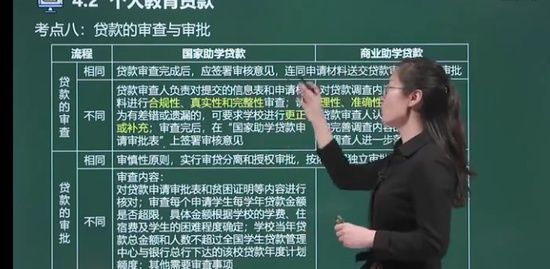 4.2 个人教育贷款
考点八：贷款的审查与审批
流程 国家助学贷款 商业助学贷款
贷款的审查
相同 贷款审查完成后，应签署审核意见，连同申请材料送交贷款审
审批
不同 贷款审查人负责对提交的信息表和申请材 对贷款调查内
料进行合规性、真实性和完整性审查；认 理性、准确性
为有差错或遗漏的，可要求学校进行更正 贷款调查人
或补充；审查完后，在“国家助学贷款申 完善调查内容
请审批表”上签署审核意见 调查人进一步
贷款的审批
相同 审慎性原则，实行审贷分离和授权审批，按 独立审批
不同 审查内容：
对贷款申请审批表和贫困证明等内容进行
核对；审查每个申请学生每学年贷款金额
是否超限，具体金额根据学校的学费、住
宿费及学生的困难程度确定；学校当年贷
款总金额和人数不超过全国学生贷款管理
中心与银行总行下达的该校贷款年度计划
额度；其他需要审查事项